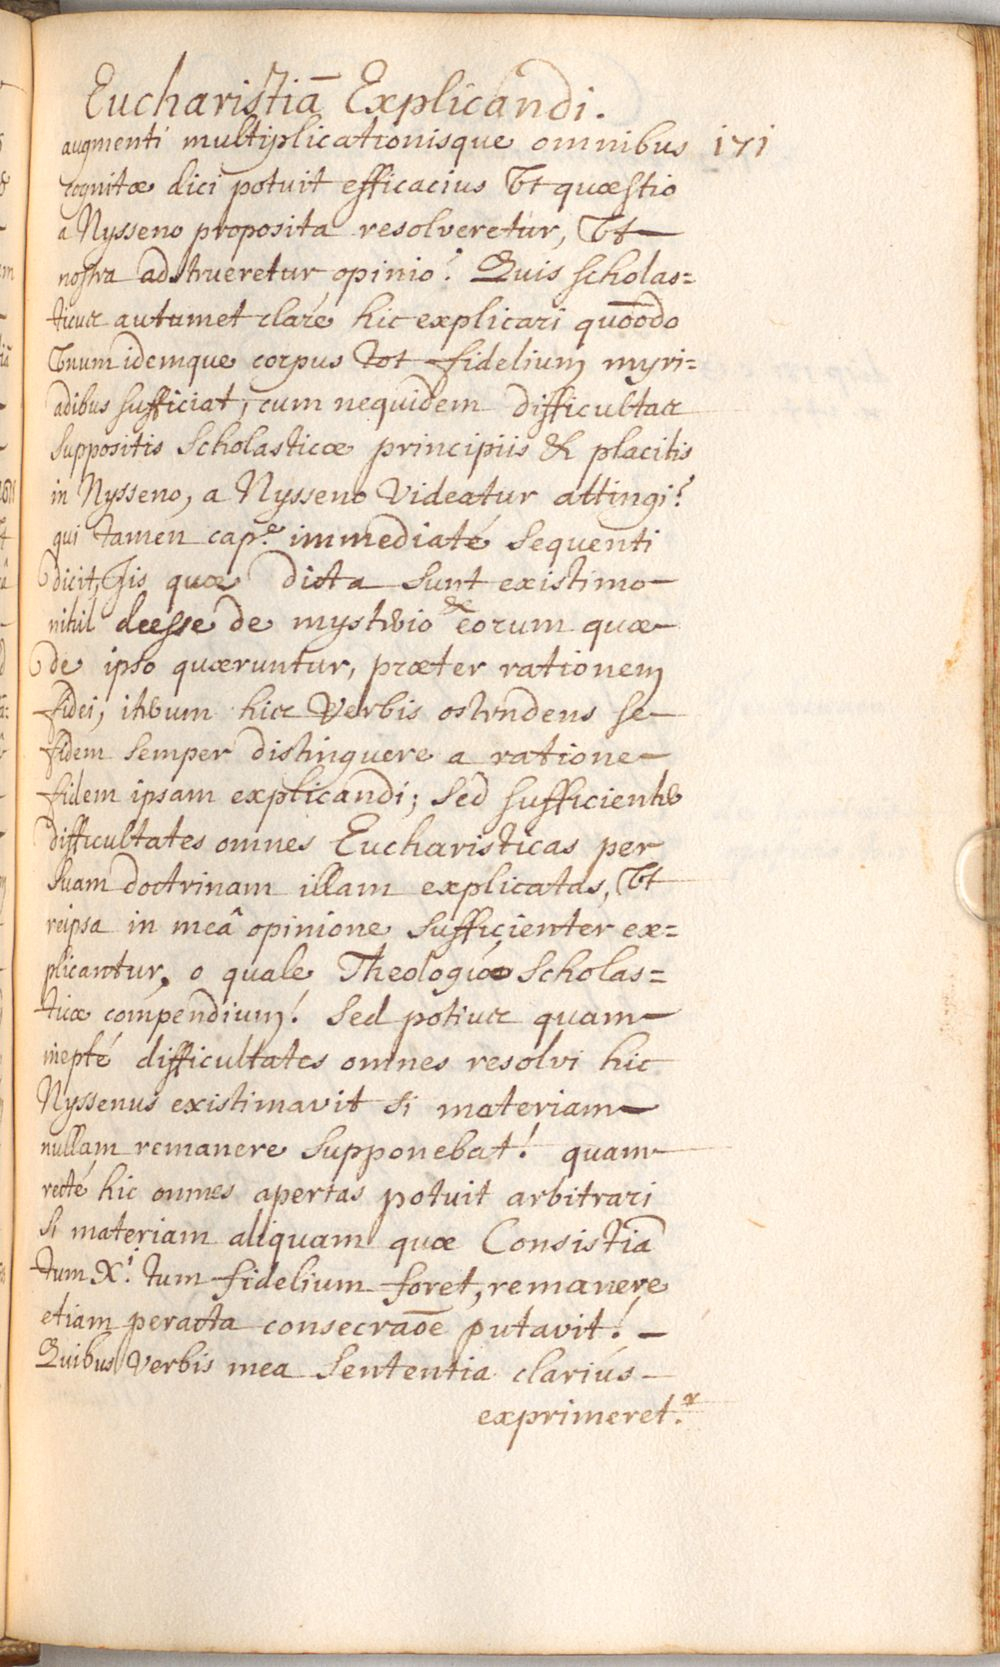 Eucharistiā Explicandi.
augmenti multiplicationisque omnibus 171
cognitæ dici potuit efficacius Vt quæstio
a Nysseno proposita resolveretur, Vt
nostra adstrueretur opinio? Quis scholas=
ticus autumet claré hic explicari quōodo
Vnum idemque corpus tot fidelium myri=
adibus sufficiat, cum nequidem difficultas
suppositis Scholasticæ principiis & placitis
in Nysseno, a Nysseno Videatur attingi?
qui tamen cap.e immediaté sequenti
dicit, Jis quæ dicta sunt existimo
nihil deesse de mysterio & eorum quæ
de ipso quæruntur, præter rationem
fidei; iterum his Verbis ostendens se
fidem semper distinguere a ratione
fidem ipsam explicandi; sed sufficienter
difficultates omnes Eucharisticas per
suam doctrinam illam explicatas, Vt
reipsa in meâ opinione sufficienter ex=
plicantur, o quale Theologiæ Scholas=
ticæ compendium! sed potius quam
inepté difficultates omnes resolvi hic
Nyssenus existimavit si materiam
nullam remanere supponebat! quam
recté hic omnes apertas potuit arbitrari
si materiam aliquam quæ Consistiā
tum X.i tum fidelium foret, remanere
etiam peracta consecraōe putavit!
Quibus Verbis mea Sententia clariús
exprimeret.r